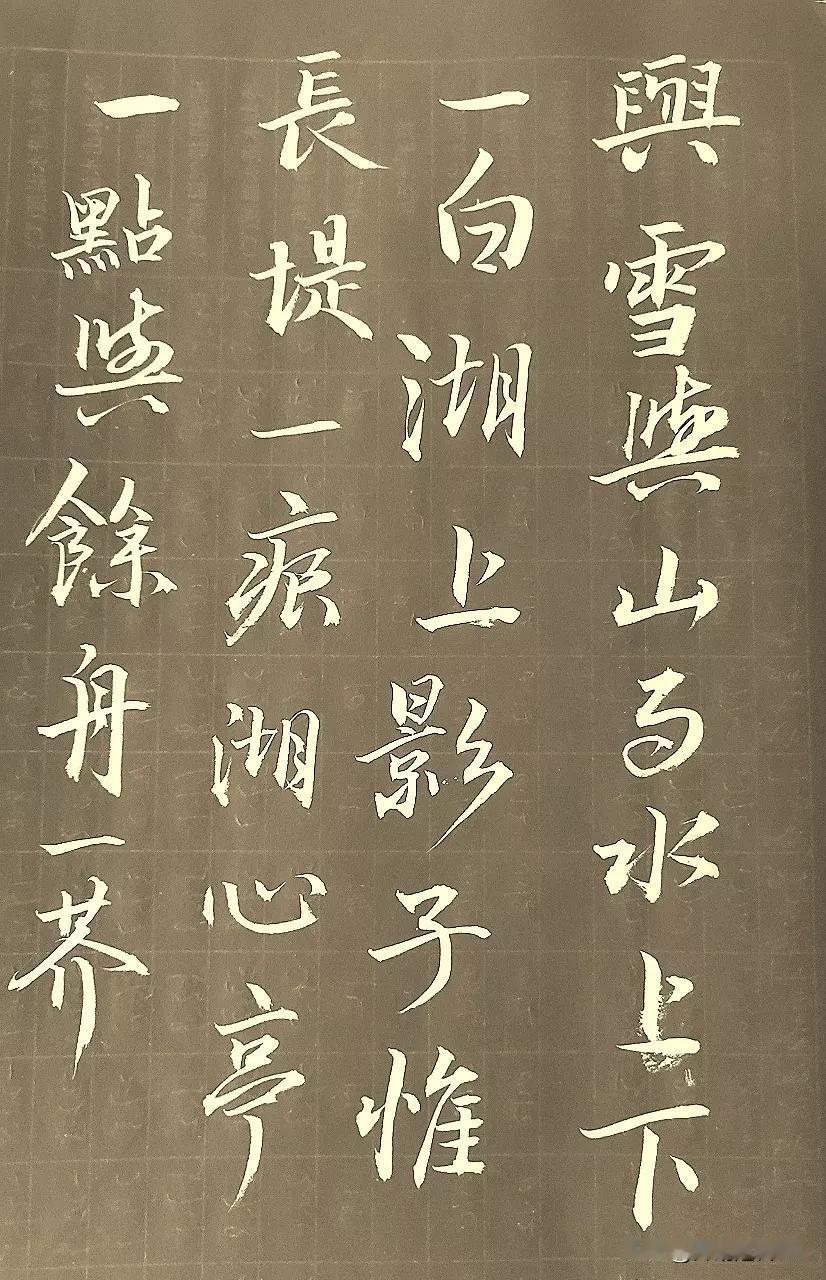 與雪與山与水上下
一白湖上影子惟
長堤一痕湖心亭
一點與餘舟一芥